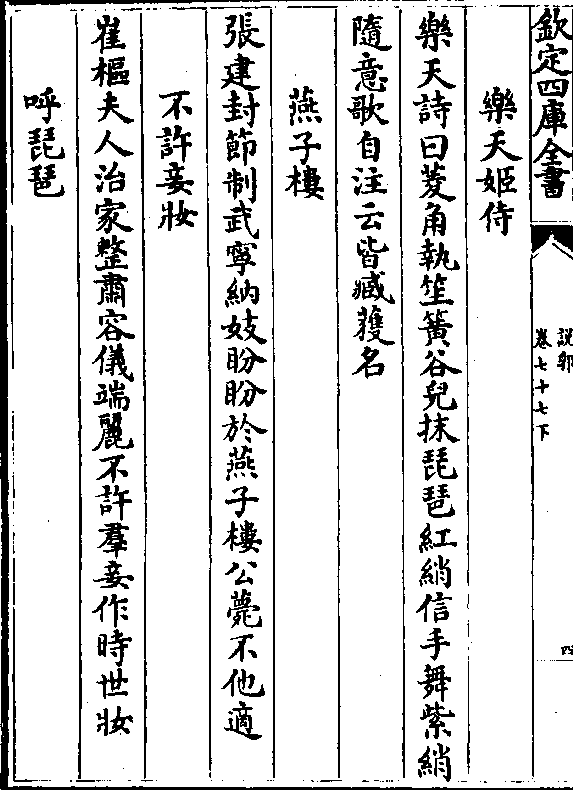 欽定四庫全書
說郛
卷七十七下
四
樂天姬侍
樂天詩曰菱角執笙簧谷兒抹琵琶紅綃信手舞紫綃
隨意歌自注云皆臧獲名
燕子樓
張建封節制武寧納妓盼盼於燕子樓公薨不他適
不許妾妝
崔樞夫人治家整肅容儀端麗不許羣妾作時世妝
呼琵琶